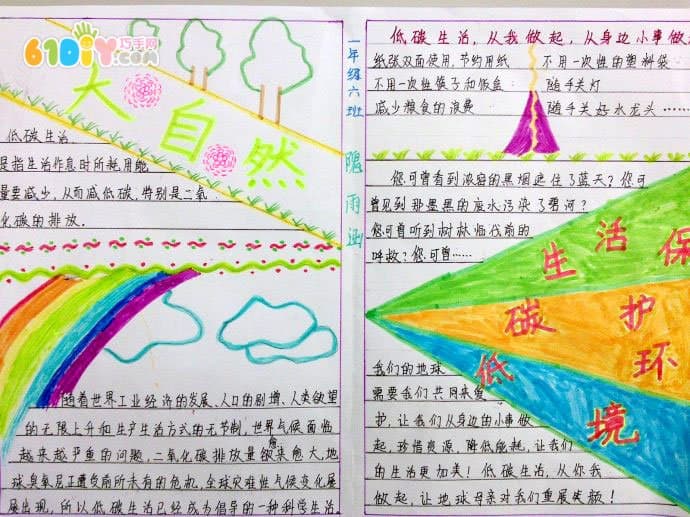 61DIY巧手网
.com
大自然
低碳生活
是指生活作息时所耗用能
量要减少,从而减低碳,特别是二氧
化碳的排放.
随着世界工业经济的发展、人口的剧增、人类欲望
的无限上升和生产生活方式的无节制,世界气候面临
越来越严重的问题,二氧化碳排放量愈来愈大,地
球臭氧层正遭受前所未有的危机,全球灾难性气候变化屡
屡出现,所以低碳生活已经成为倡导的一种科学生活
一年级六班
雨涵
低碳生活,从我做起,从身边小事做
纸张双面使用,节约用纸 不用一次性的塑料袋
不用一次性筷子和饭盒 随手关灯
减少粮食的浪费 随手关好水龙头……
您可曾看到浓密的黑烟遮住了蓝天?您可
曾见到那墨黑的废水污染了碧河?
您可曾听到树林临伐前的
呼救?您可曾……
低碳生活
保护环境
我们的地球
需要我们共同来爱
护,让我们从身边的小事做
起,珍惜资源,降低能耗,让我们
的生活更加美!低碳生活,从你我
做起,让地球母亲对我们重展笑颜!